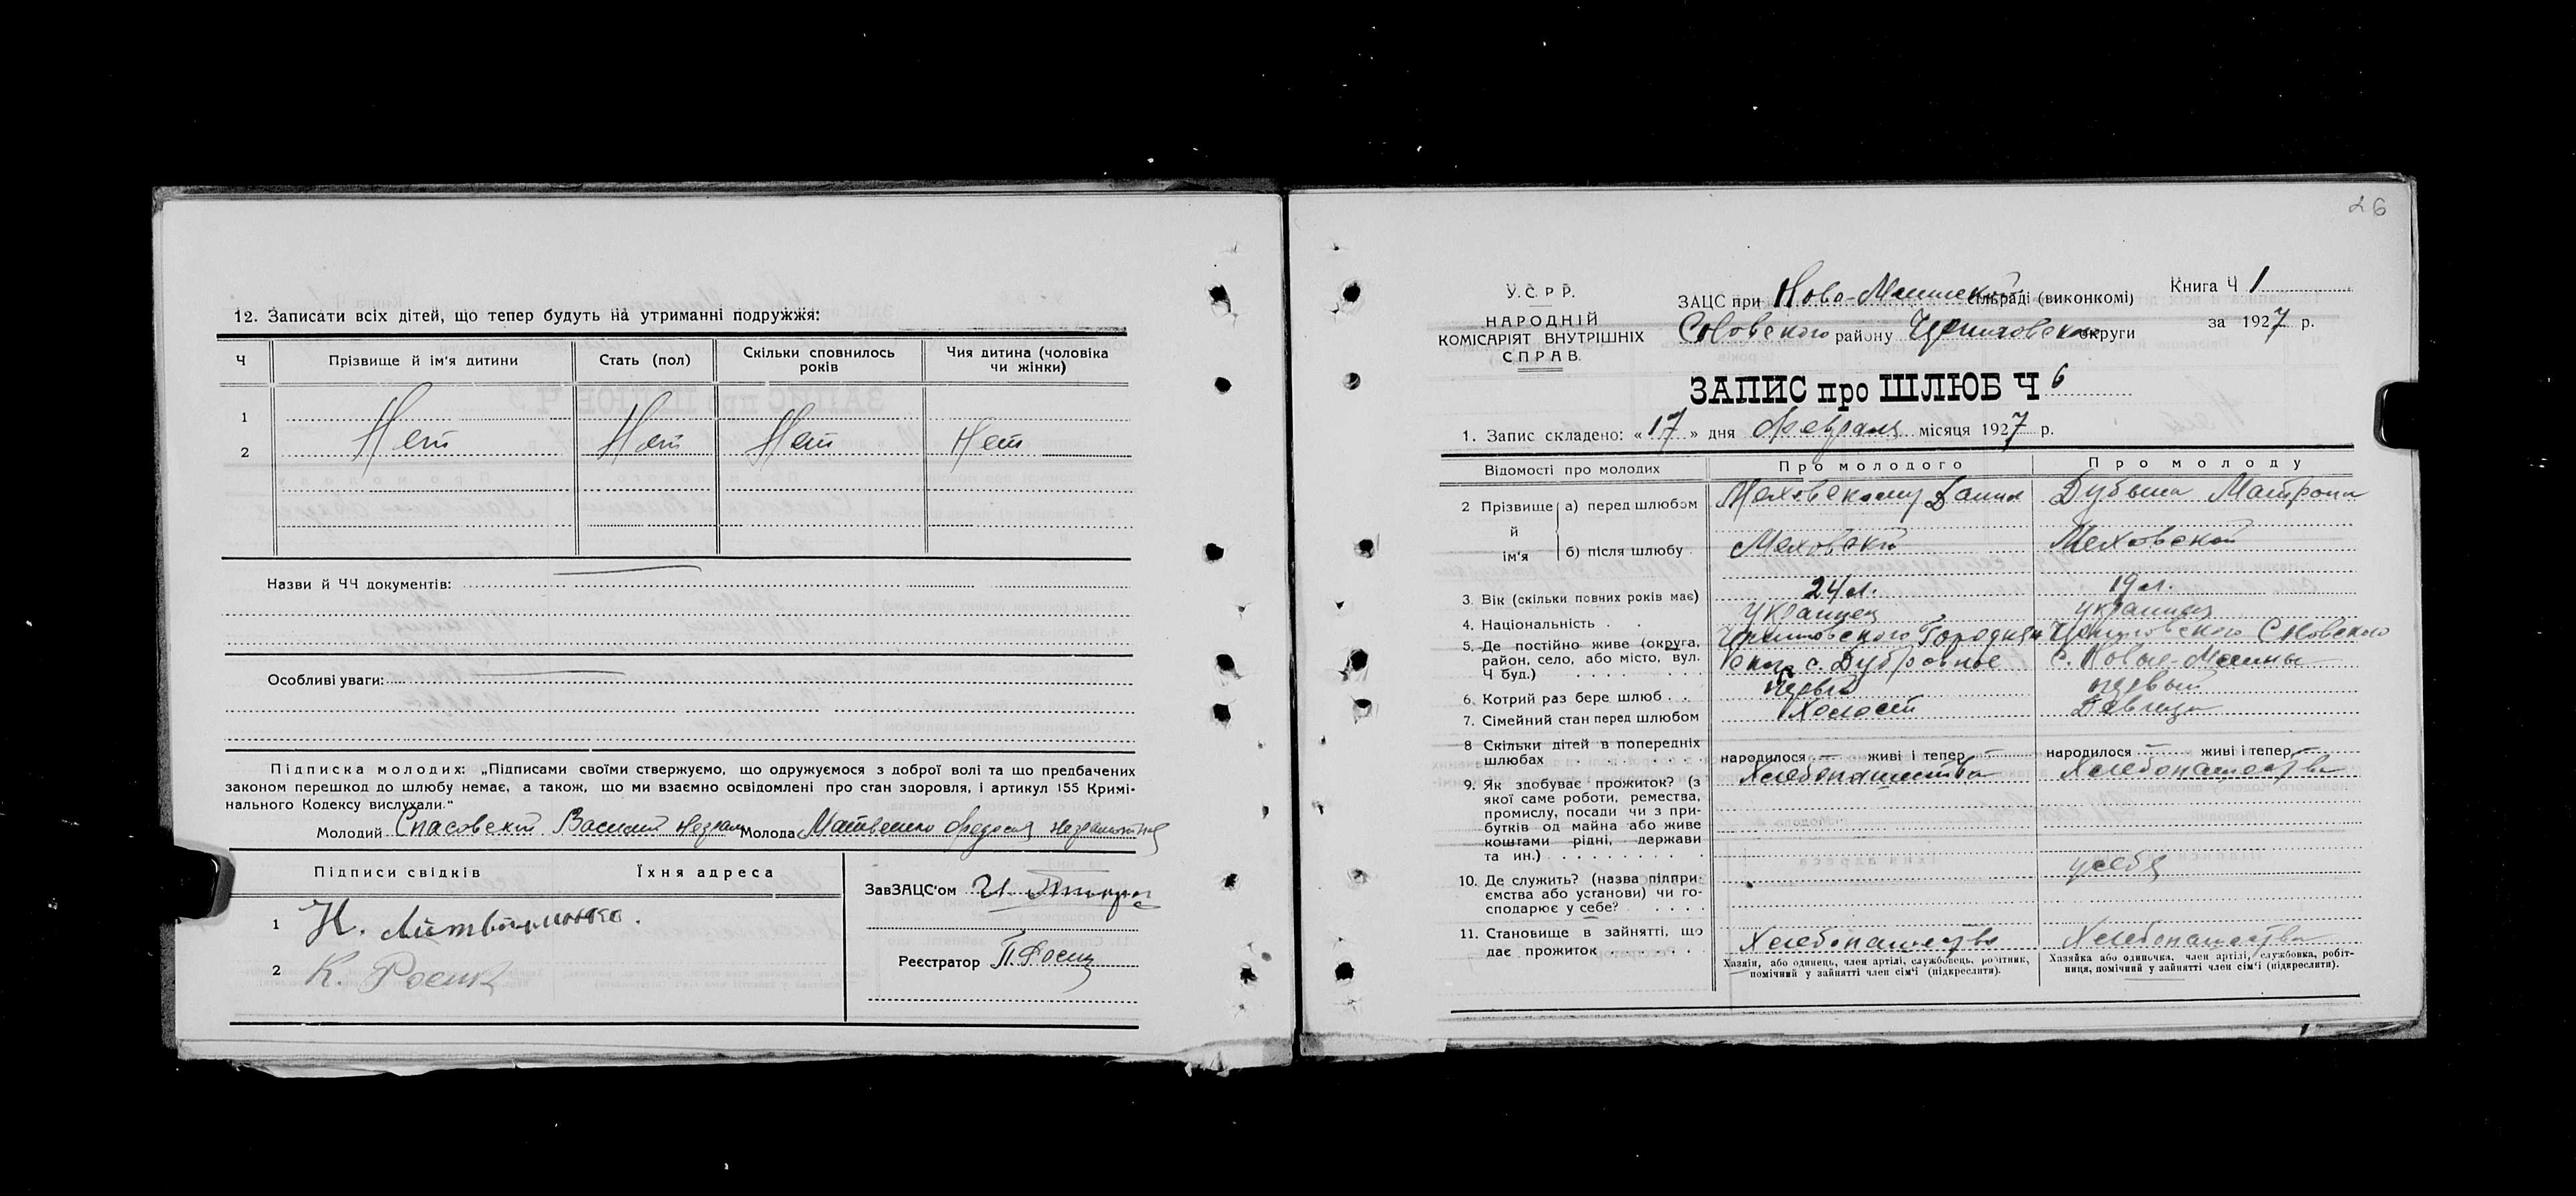 12. Записати всіх дітей, що тепер будуть на утриманні подружжя:
Ч Прізвище й ім'я дитини Стать (пол) Скільки сповнилось років Чия дитина (чоловіка чи жінки)
1
2 Нет Нет Нет Нет
Назви й ЧЧ документів:
Особливі уваги:
Підписка молодих: „Підписами своїми стверджуємо, що одружуємося з доброї волі та що предбачених
законом перешкод до шлюбу немає, а також, що ми взаємно освідомлені про стан здоров'я, і артикул 155 Кримі-
нального Кодексу вислухали."
Молодий Спасовский Василий неграм Молода Матвеенко Федосия неграмотная
Підписи свідків Їхня адреса
ЗавЗАЦС'ом
1 Н.
2 К. Росик
Реєстратор П. Росик
26
У.С.Р.Р.
НАРОДНІЙ
КОМІСАРІЯТ ВНУТРІШНІХ
СПРАВ.
ЗАЦС при Ново-Млинской сільраді (виконкомі)
Книга Ч 1
Сновского району Черниговской округи
за 1927 р.
ЗАПИС про ШЛЮБ Ч 6
1. Запис складено: «17» дня Февраля місяця 1927 р.
Відомості про молодих Про молодого Про молоду
2 Прізвище й ім'я а) перед шлюбом Меховскому Данил Дубына Матрона
б) після шлюбу Меховский Меховской
3. Вік (скільки повних років має) 24 л. 19 л.
4. Національність украинец украинец
5. Де постійно живе (округа, район, село, або місто, вул. Ч буд.) Черниговского Городнян ского с. Дубровное Черниговского Сновского с. Новые-Млины
6. Котрий раз бере шлюб первый первый
7. Сімейний стан перед шлюбом Холост Девица
8 Скільки дітей в попередніх шлюбах народилося — живі і тепер — народилося — живі і тепер —
9. Як здобуває прожиток? (з якої саме роботи, ремества, промислу, посади чи з прибутків од майна або живе коштами рідні, держави та ин.) Хлебопашества Хлебопашества
10. Де служить? (назва підприємства або установи) чи господарює у себе? у себя
11. Становище в зайнятті, що дає прожиток Хлебопашество Хлебопашества
Хазяїн, або одинець, член артілі, службовець, робітник, помічний у зайнятті член сім'ї (підкреслити).
Хазяйка або одиночка, член артілі, службовка, робітниця, помічний у зайнятті член сім'ї (підкреслити).